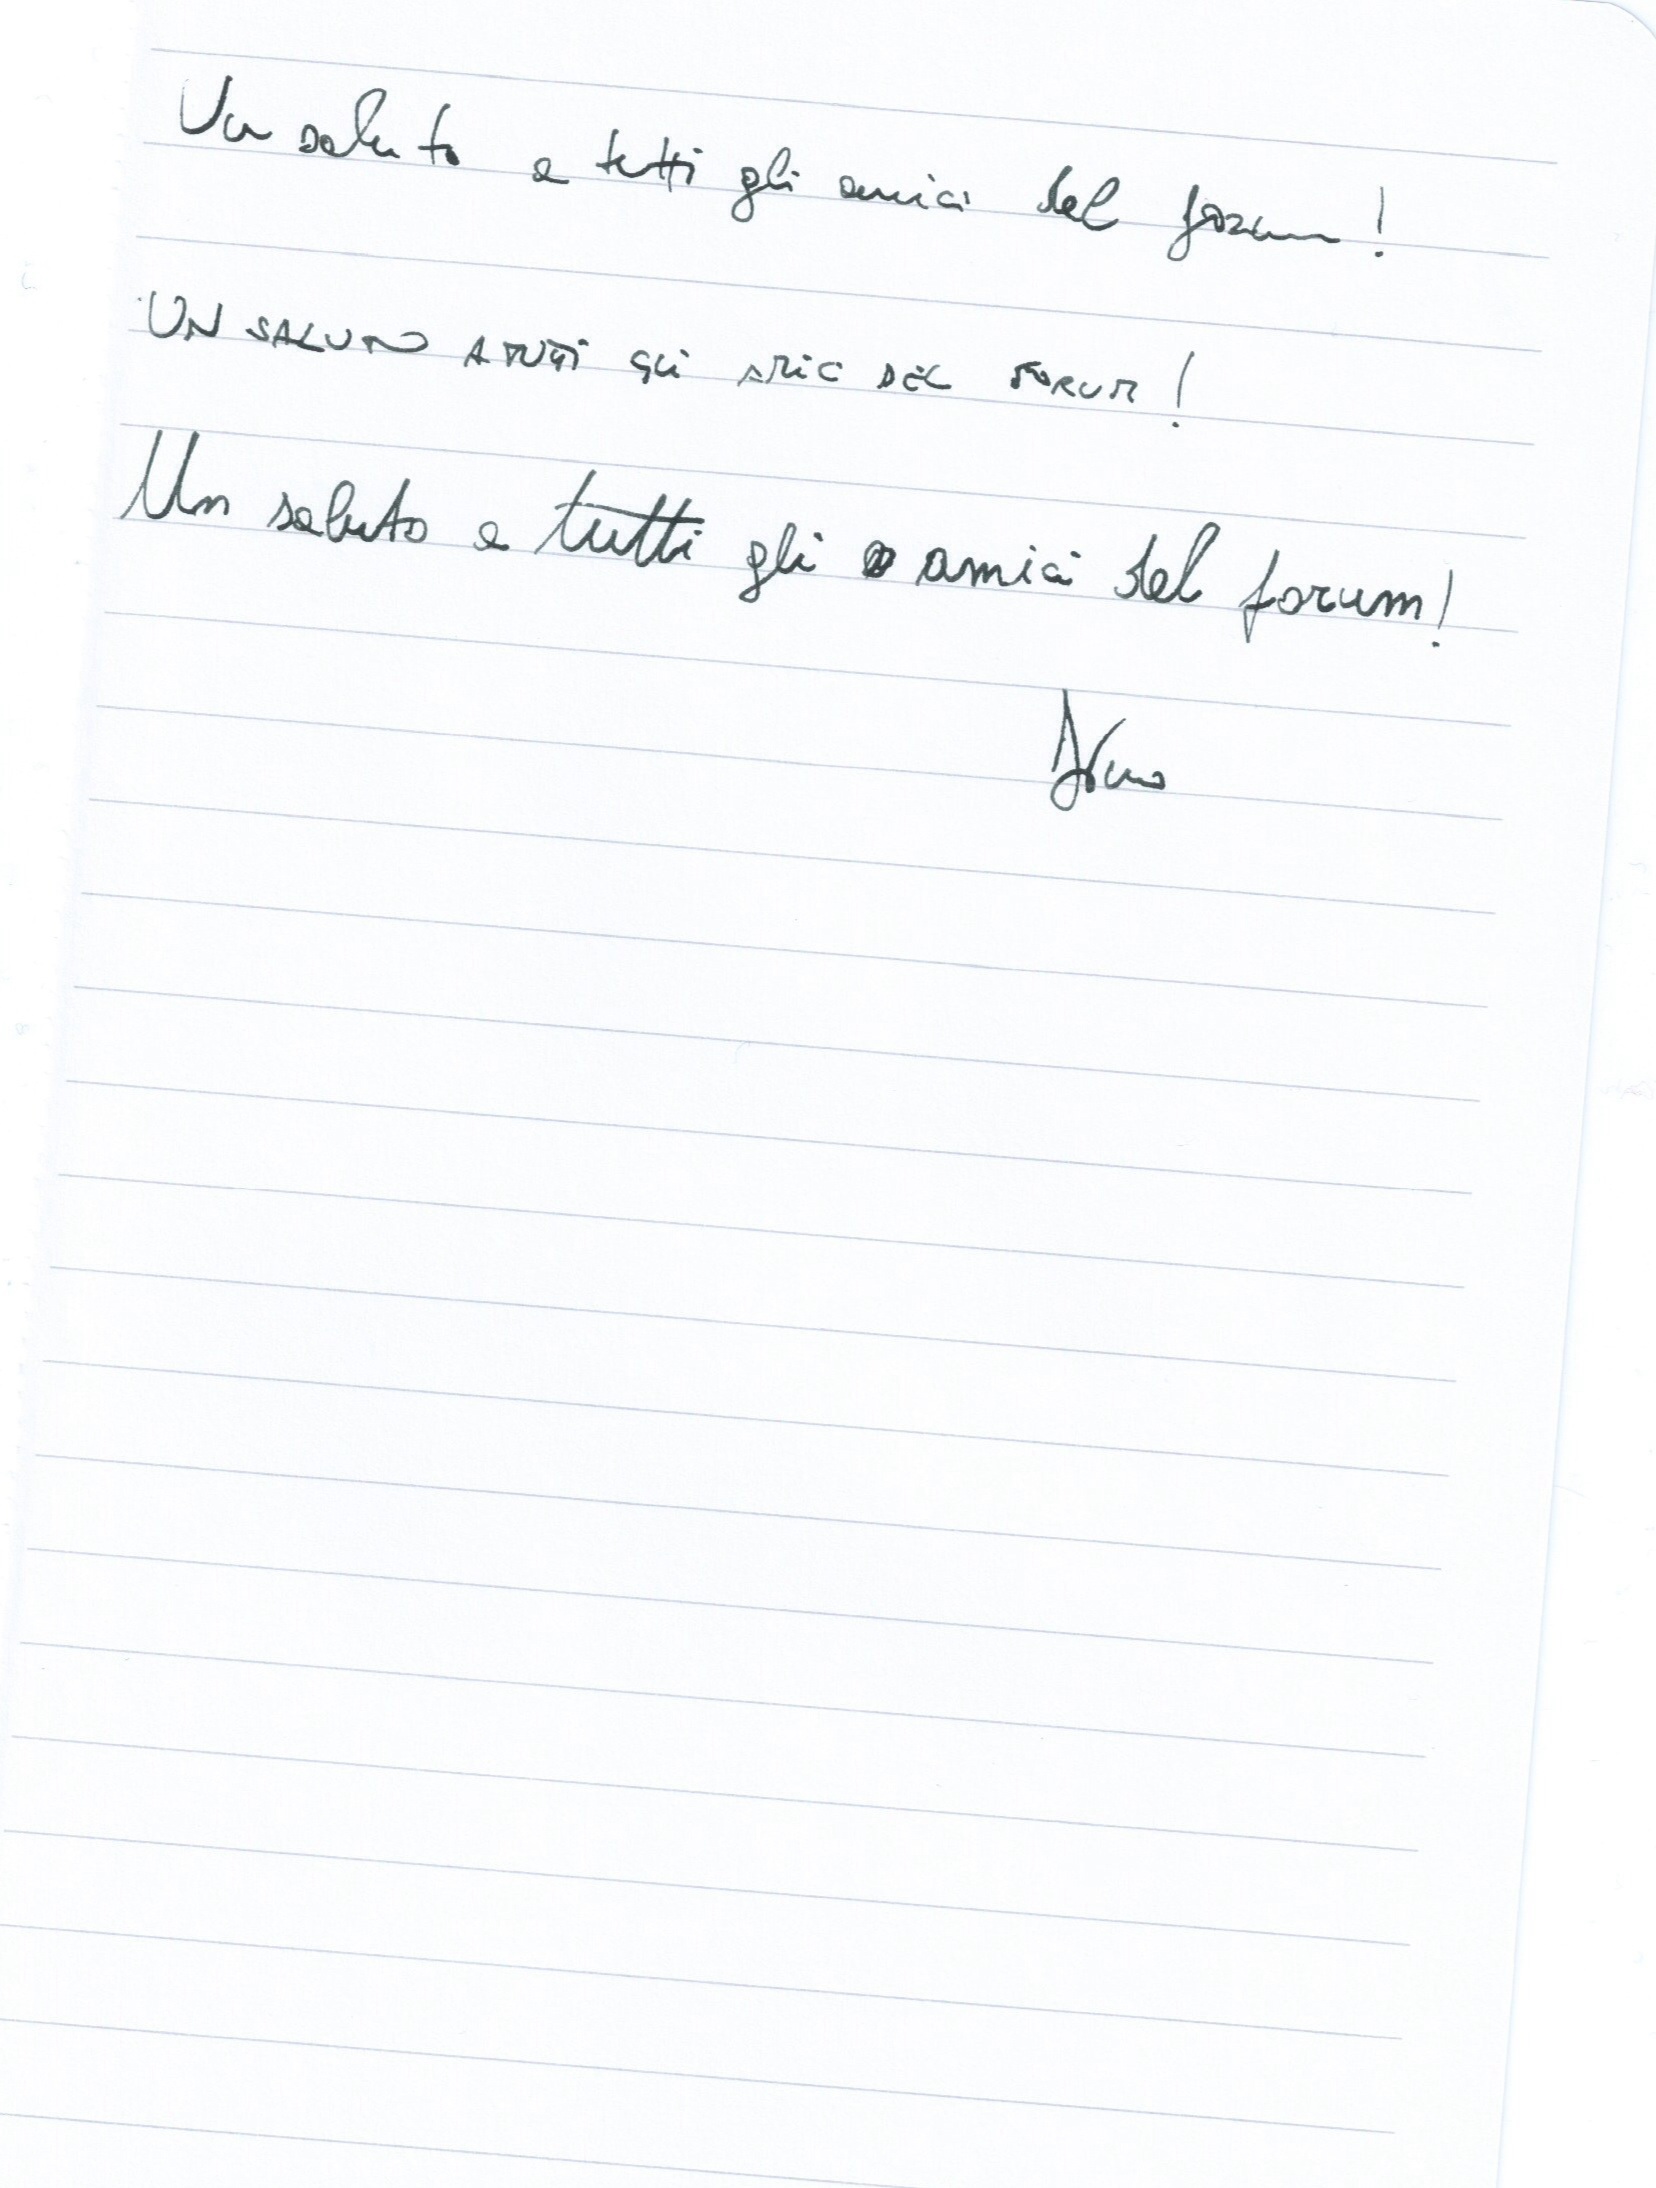 Un saluto a tutti gli amici del forum!
UN SALUTO A TUTTI GLI AMICI DEL FORUM!
Un saluto a tutti gli amici del forum!